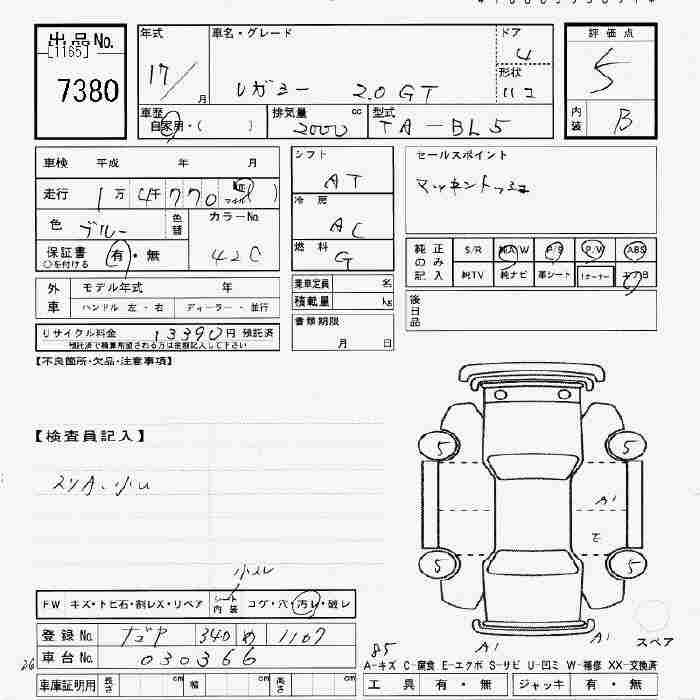 出品No.
[1165]
7380
年式
17/ 月
車名・グレード
レガシー 2.0GT
ドア
4
形状
ハコ
評価点
5
内装
B
車歴
自家用・( )
排気量 cc
2000
型式
TA-BL5
車検 平成 年 月
走行 1万 4千 770
色 ブルー
色替
カラーNo.
42C
保証書
○を付ける
有・無
シフト
AT
冷房
AC
燃料
G
セールスポイント
純正のみ記入
S/R 純AW P/S P/W ABS
純TV 純ナビ 革シート エアB
外車
モデル年式 年
ハンドル 左・右 ディーラー・並行
乗車定員 名
積載量 kg
後日品
リサイクル料金 13390円 預託済
預託済で積算希望される方は金額記入して下さい
書類期限
月 日
【不良箇所・欠品・注意事項】
【検査員記入】
スリA・小U
5 5
A1
E
5 5
小スレ
FW キズ・トビ石・割レX・リペア シート内装 コゲ・穴・汚レ・破レ
登録No. ナゴヤ 340 め 1107
車台No. 030366
26
85
A1 A1
スペア
A-キズ C-腐食 E-エクボ S-サビ U-凹ミ W-補修 XX-交換済
車庫証明用 長さ cm 幅 cm 高さ cm
工具 有・無 ジャッキ 有・無